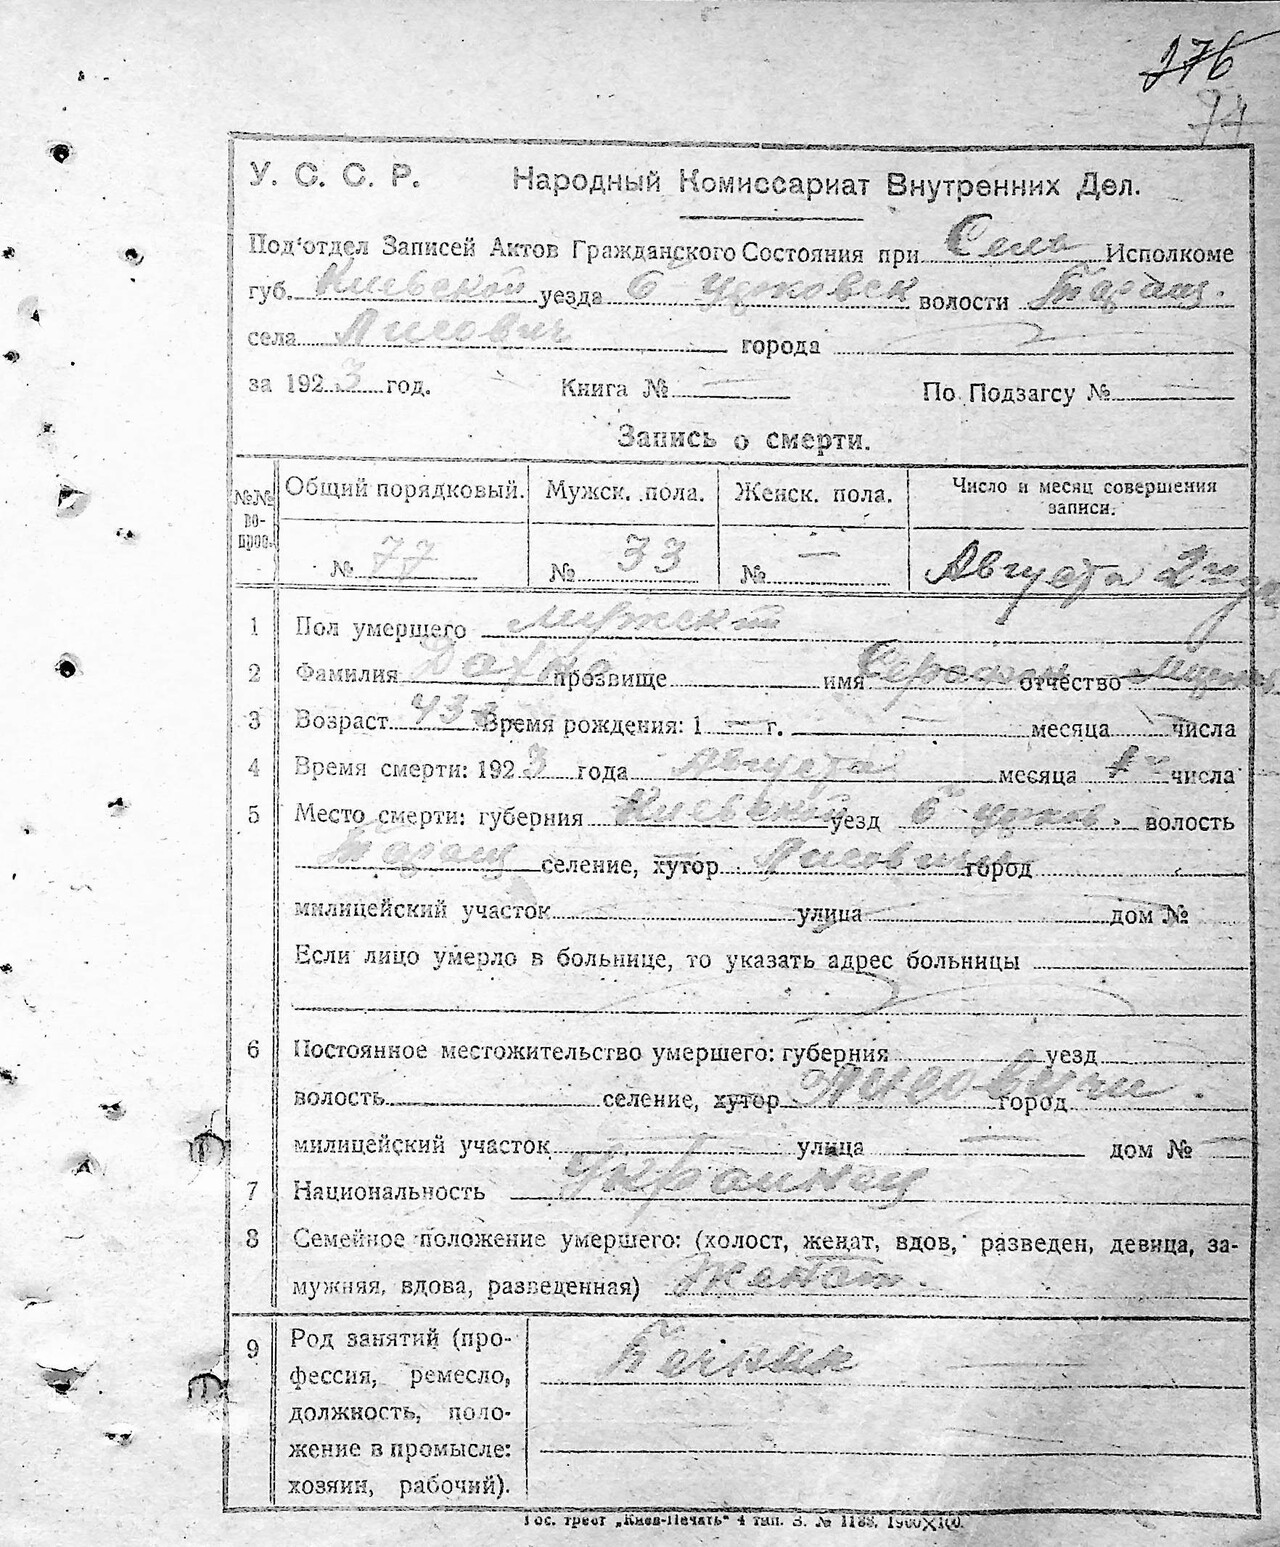 276
74
У. С. С. Р. Народный Комиссариат Внутренних Дел.
Под'отдел Записей Актов Гражданского Состояния при Села Исполкоме
губ. Киевской уезда Б-Церковск волости Таращ.
села Лисович города
за 1923 год. Книга № — По Подзагсу №
Запись о смерти.
№№ вопрос. Общий порядковый. Мужск. пола. Женск. пола. Число и месяц совершения записи.
№ 77 № 33 № — Августа 2го дня
1 Пол умершего мужской
2 Фамилия Дахно прозвище имя Серафим отчество
3 Возраст 43 Время рождения: 1 — г. — месяца — числа
4 Время смерти: 1923 года Августа месяца 1 числа
5 Место смерти: губерния Киевской уезд Б-Церков. волость
Таращ селение, хутор Лисовичи город
милицейский участок улица дом №
Если лицо умерло в больнице, то указать адрес больницы
6 Постоянное местожительство умершего: губерния уезд
волость селение, хутор Лисовичи город
милицейский участок улица — дом № —
7 Национальность Украинец
8 Семейное положение умершего: (холост, женат, вдов, разведен, девица, за-
мужняя, вдова, разведенная) Женат.
9 Род занятий (про- Печник
фессия, ремесло,
должность, поло-
жение в промысле:
хозяин, рабочий).
Гос. трест „Киев-Печать" 4 тип. З. № 1188. 1900×100.